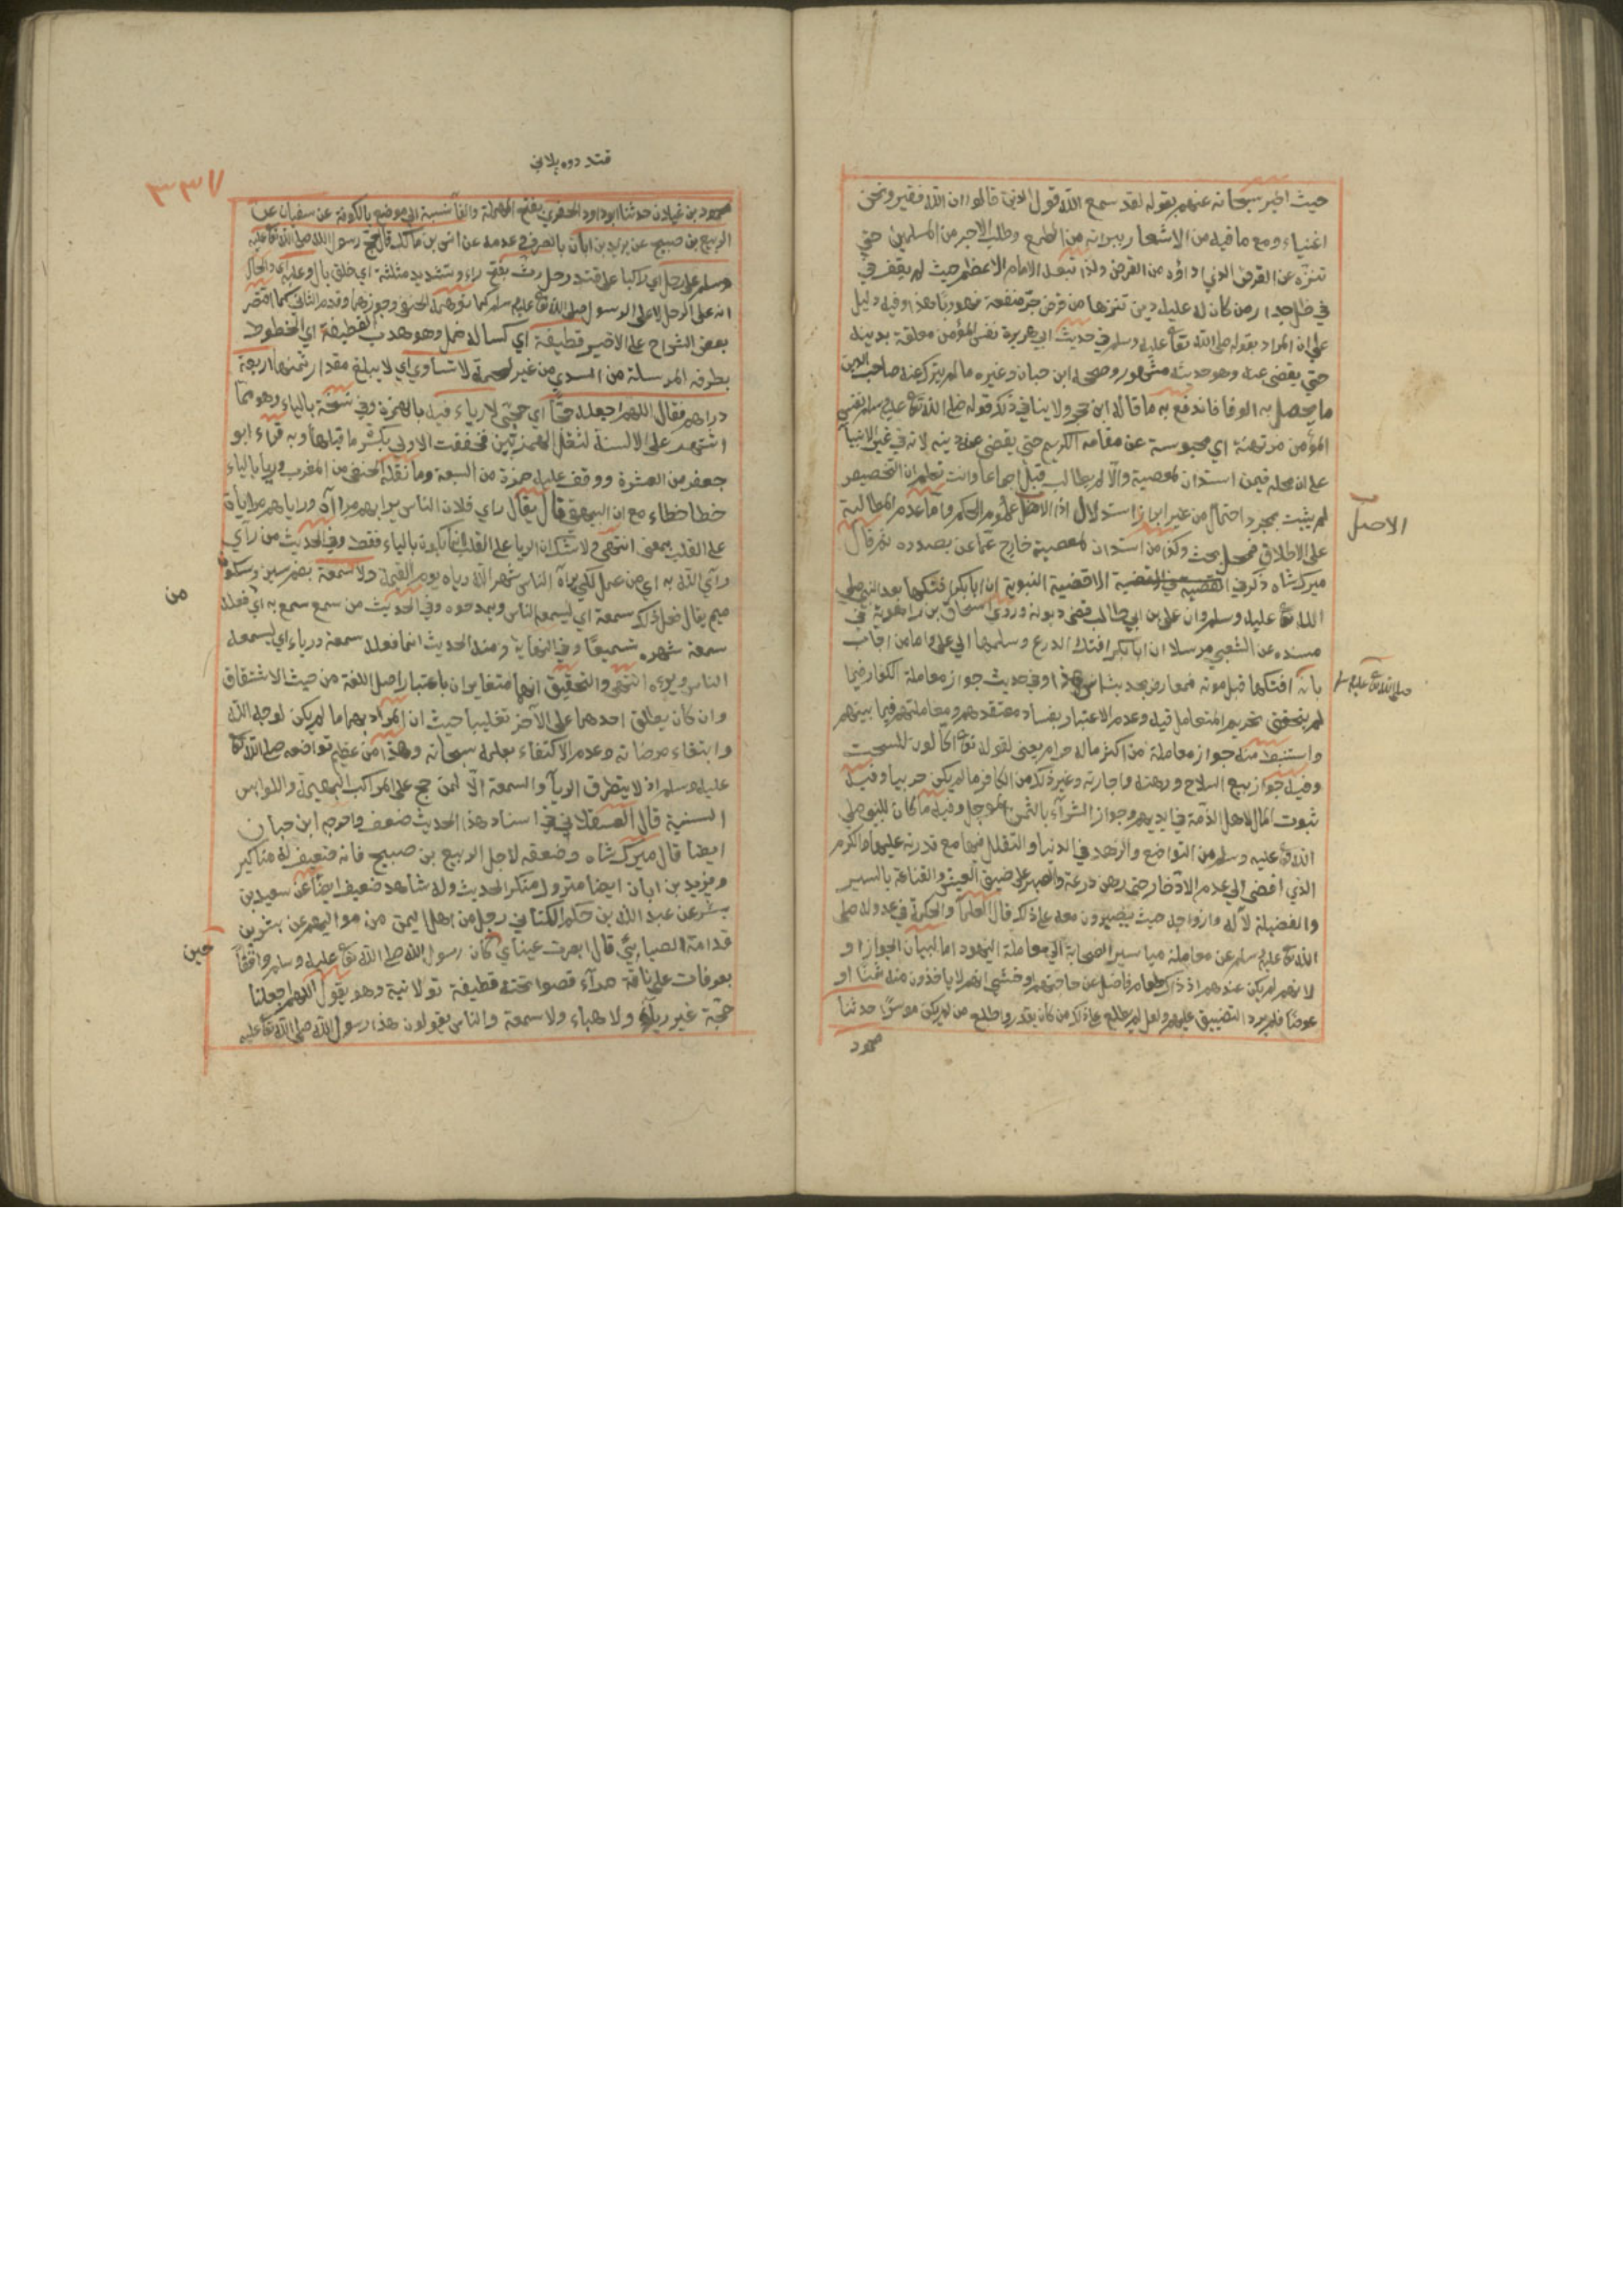 حيث اخبر سبحانه عنهم بقوله لقد سمع الله قول الذين قالوا ان الله فقير ونحن
اغنياء ومع ما فيه من الاشعار ببراته من الطمع وطلب الاجر من المسلمين حتي
تنزه عن القرض الذي اداؤه من القرض ولذا تبعه الامام الاعظم حيث لم يقف في
في ظل جدار من كان له عليه دين تنزها من قرض جر منفعة فهو ربا هذا وفيه دليل
علي ان المراد بقوله صلي الله تعا عليه وسلم في حديث ابي هريرة نفس المؤمن معلقة بدينه
حتي يقضي عنه وهو حديث مشهور وصححه ابن حبان وغيره ما لم يترك عند صاحب الدين
ما يحصل به الوفا فاندفع به ما قاله ابن حجر ولا ينافي ذلك قوله صلي الله تعا عليه وسلم نفس
المؤمن مرتهنة اي محبوسة عن مقامه الكريم حتي يقضي عنه دينه لانه في غير الانبيا
علي ان محله فيمن استدان لمعصية والا لم يطالب قبل اجماعا وانت تعلم ان التخصيص
لم يثبت بمجرد احتمال من غير ابراز استدلال اذ الاصل عموم الحكم واما عدم المطالبة
الاصل
علي الاطلاق فمحل بحث وكذا من استدان لمعصية خارج عما عن بصدده ثم قال
ميرك شاه ذكر في القضية في القضية الاقضية النبوية ان ابا بكر افتكها بعد النبي صلي
الله تعا عليه وسلم وان علي بن ابي طالب قضي ديونه وروي اسحاق بن راهوية في
مسنده عن الشعبي مرسلا ان ابا بكر افتك الدرع وسلمها الي علي واما من اجاب
بانه افتكها قبل موته فمعارض بحديث انس هذا وفي حديث جواز معاملة الكفار فيما
صلي الله تعا عليه وسلم
لم يتحقق تحريم المتعامل فيه وعدم الاعتبار بفساد معتقدهم ومعاملتهم فيما بينهم
واستنبط منه جواز معاملة من اكثر ماله حرام يعني لقوله تعا اكالون للسحت
وفيه جواز بيع السلاح ورهنه واجارته وغير ذلك من الكافر ما لم يكن حربيا وفيه
ثبوت المال لاهل الذمة في ايديهم وجواز الشرآء بالثمن المؤجل وفيه ما كان للنبي صلي
الله تعا عليه وسلم من التواضع والزهد في الدنيا والتقلل منها مع قدرته عليها والكرم
الذي افضي الي عدم الادخار حتي رهن درعه والصبر علي ضيق العيش والقناعة باليسير
والفضيلة لآله وازواجه حيث يصبرون معه علي ذلك قال العلمآ والحكمة في عدوله صلي
الله تعا عليه وسلم عن معاملة مياسير الصحابة الي معاملة اليهود اما لبيان الجواز او
لانهم لم يكن عندهم اذ ذاك طعام فاضل عن حاجتهم او خشي انهم لا ياخذون منه ثمنا او
عوضا فلم يرد التضييق عليهم ولعل لم يطلع علي ذلك من كان يقدر واطلع من لم يكن موسرا حدثنا
محمود
قتد دوه پلاني
٣٣٧
محمود بن غيلان حدثنا ابو داود الحفري بفتح المهملة والفا نسبة الي موضع بالكوفة عن سفيان عن
الربيع بن صبيح عن يزيد بن ابان بالصرف وعدمه عن انس بن مالك قال حج رسول الله صلي الله تعا عليه
وسلم علي رحل اي راكبا علي قتد رحل رث بفتح راء وتشديد مثلثة اي خلق بال وعليه اي والحال
انه علي الرحل لا علي الرسول صلي الله تعا عليه وسلم كما توهمه الحنفي وجوزهما وقدم الثاني كما اقتصر
بعض الشراح علي الاخير قطيفة اي كسا له خمل وهو هدب القطيفة اي الخطوط
بطرفه المرسلة من السدي من غير لحمة لا تساوي اي لا يبلغ مقدار ثمنها اربعة
دراهم فقال اللهم اجعله حجا اي حجتي لا رياء فيه بالهمزة وفي نسخة بالياء وهو مما
اشتهر علي الالسنة لثقل الهمزتين فخففت الاولي بكسر ما قبلها وبه قراء ابو
جعفر من العشرة ووقف عليه حمزة من السبعة وما نقله الحنفي من المغرب وريا بالياء
خطا خطاء مع ان البيهقي قال يقال راي فلان الناس يرايهم مراآة وراياهم مراياة
علي القلب بمعني انتهي ولا شك ان الريا علي القلب انما يكون بالياء فقط وفي الحديث من رآي
رآي الله به اي من عمل لكي يراه الناس شهر الله رياه يوم القيمة ولا سمعة بضم سين وسكون
من
ميم يقال فعل ذلك سمعة اي ليسمعه الناس ويمدحوه وفي الحديث من سمع سمع به اي فعله
سمعة شهره تسميعا وفي النهاية ومنه الحديث انما فعله سمعة ورياء اي ليسمعه
الناس ويروه انتهي والتحقيق انهما متغايران باعتبار اصل اللغة من حيث الاشتقاق
وان كان يطلق احدهما علي الآخر تغليبا حيث ان المراد بهما ما لم يكن لوجه الله
وابتغاء مرضاته وعدم الاكتفاء بعلمه سبحانه وهذا من عظيم تواضعه صلي الله تعا
عليه وسلم اذ لا يتطرق الريآ والسمعة الا لمن حج علي المراكب البهية واللوابس
السنية قال العسقلاني في اسناد هذا الحديث ضعف واخرجه ابن حبان
ايضا قال ميرك شاه وضعفه لاجل الربيع بن صبيح فانه ضعيف له مناكير
ويزيد بن ابان ايضا متروك منكر الحديث وله شاهد ضعيف ايضا عن سعيد بن
بشر عن عبد الله بن حكيم الكناني رجل من اهل اليمن من مواليهم عن بشر بن
قدامة الضبابي قال ابصرت عيناي كان رسول الله صلي الله تعا عليه وسلم واقفا
حين
بعرفات علي ناقة حمرآء قصوا تحته قطيفة بولانية وهو يقول اللهم اجعلنا
حجة غير رياء ولا هباء ولا سمعة والناس يقولون هذا رسول الله صلي الله تعا عليه